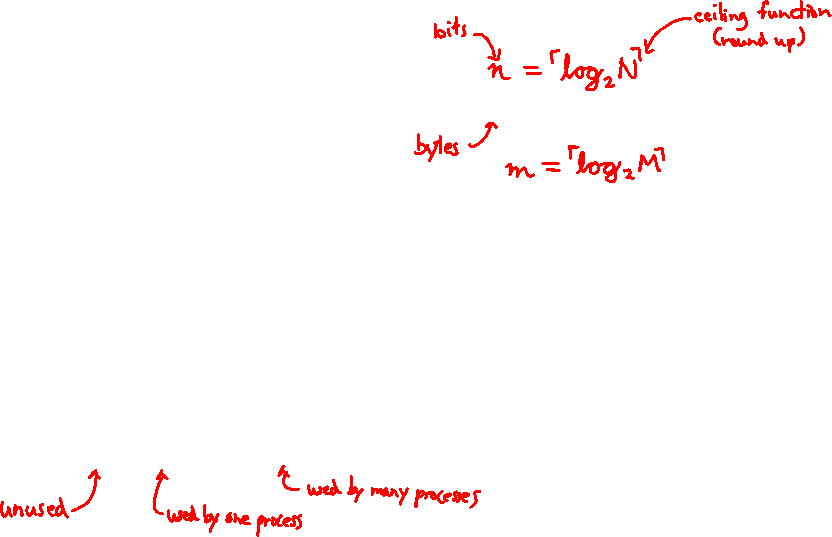 bits
ceiling function
(round up)
n = ⌈log₂N⌉
bytes
m = ⌈log₂M⌉
unused
used by one process
used by many processes